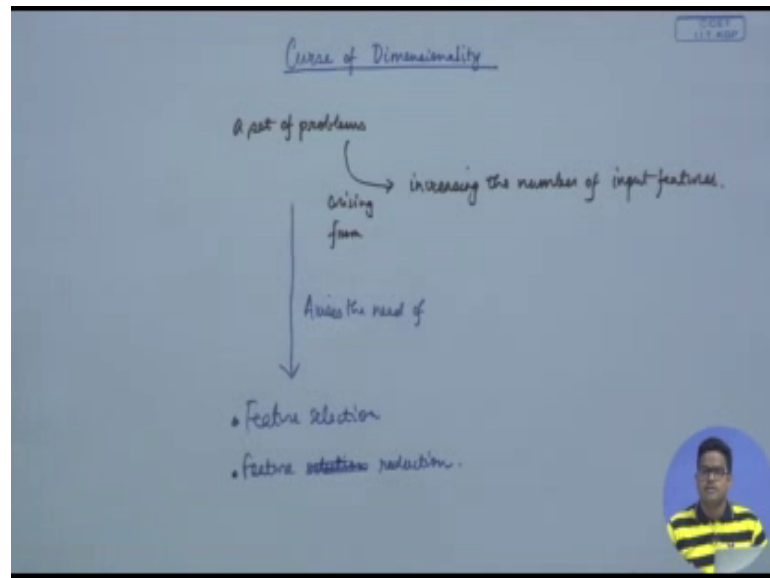 CCET
I.I.T. KGP
Curse of Dimensionality
a set of problems
arising
from
increasing the number of input features.
Arises the need of
• Feature selection
• Feature reduction.